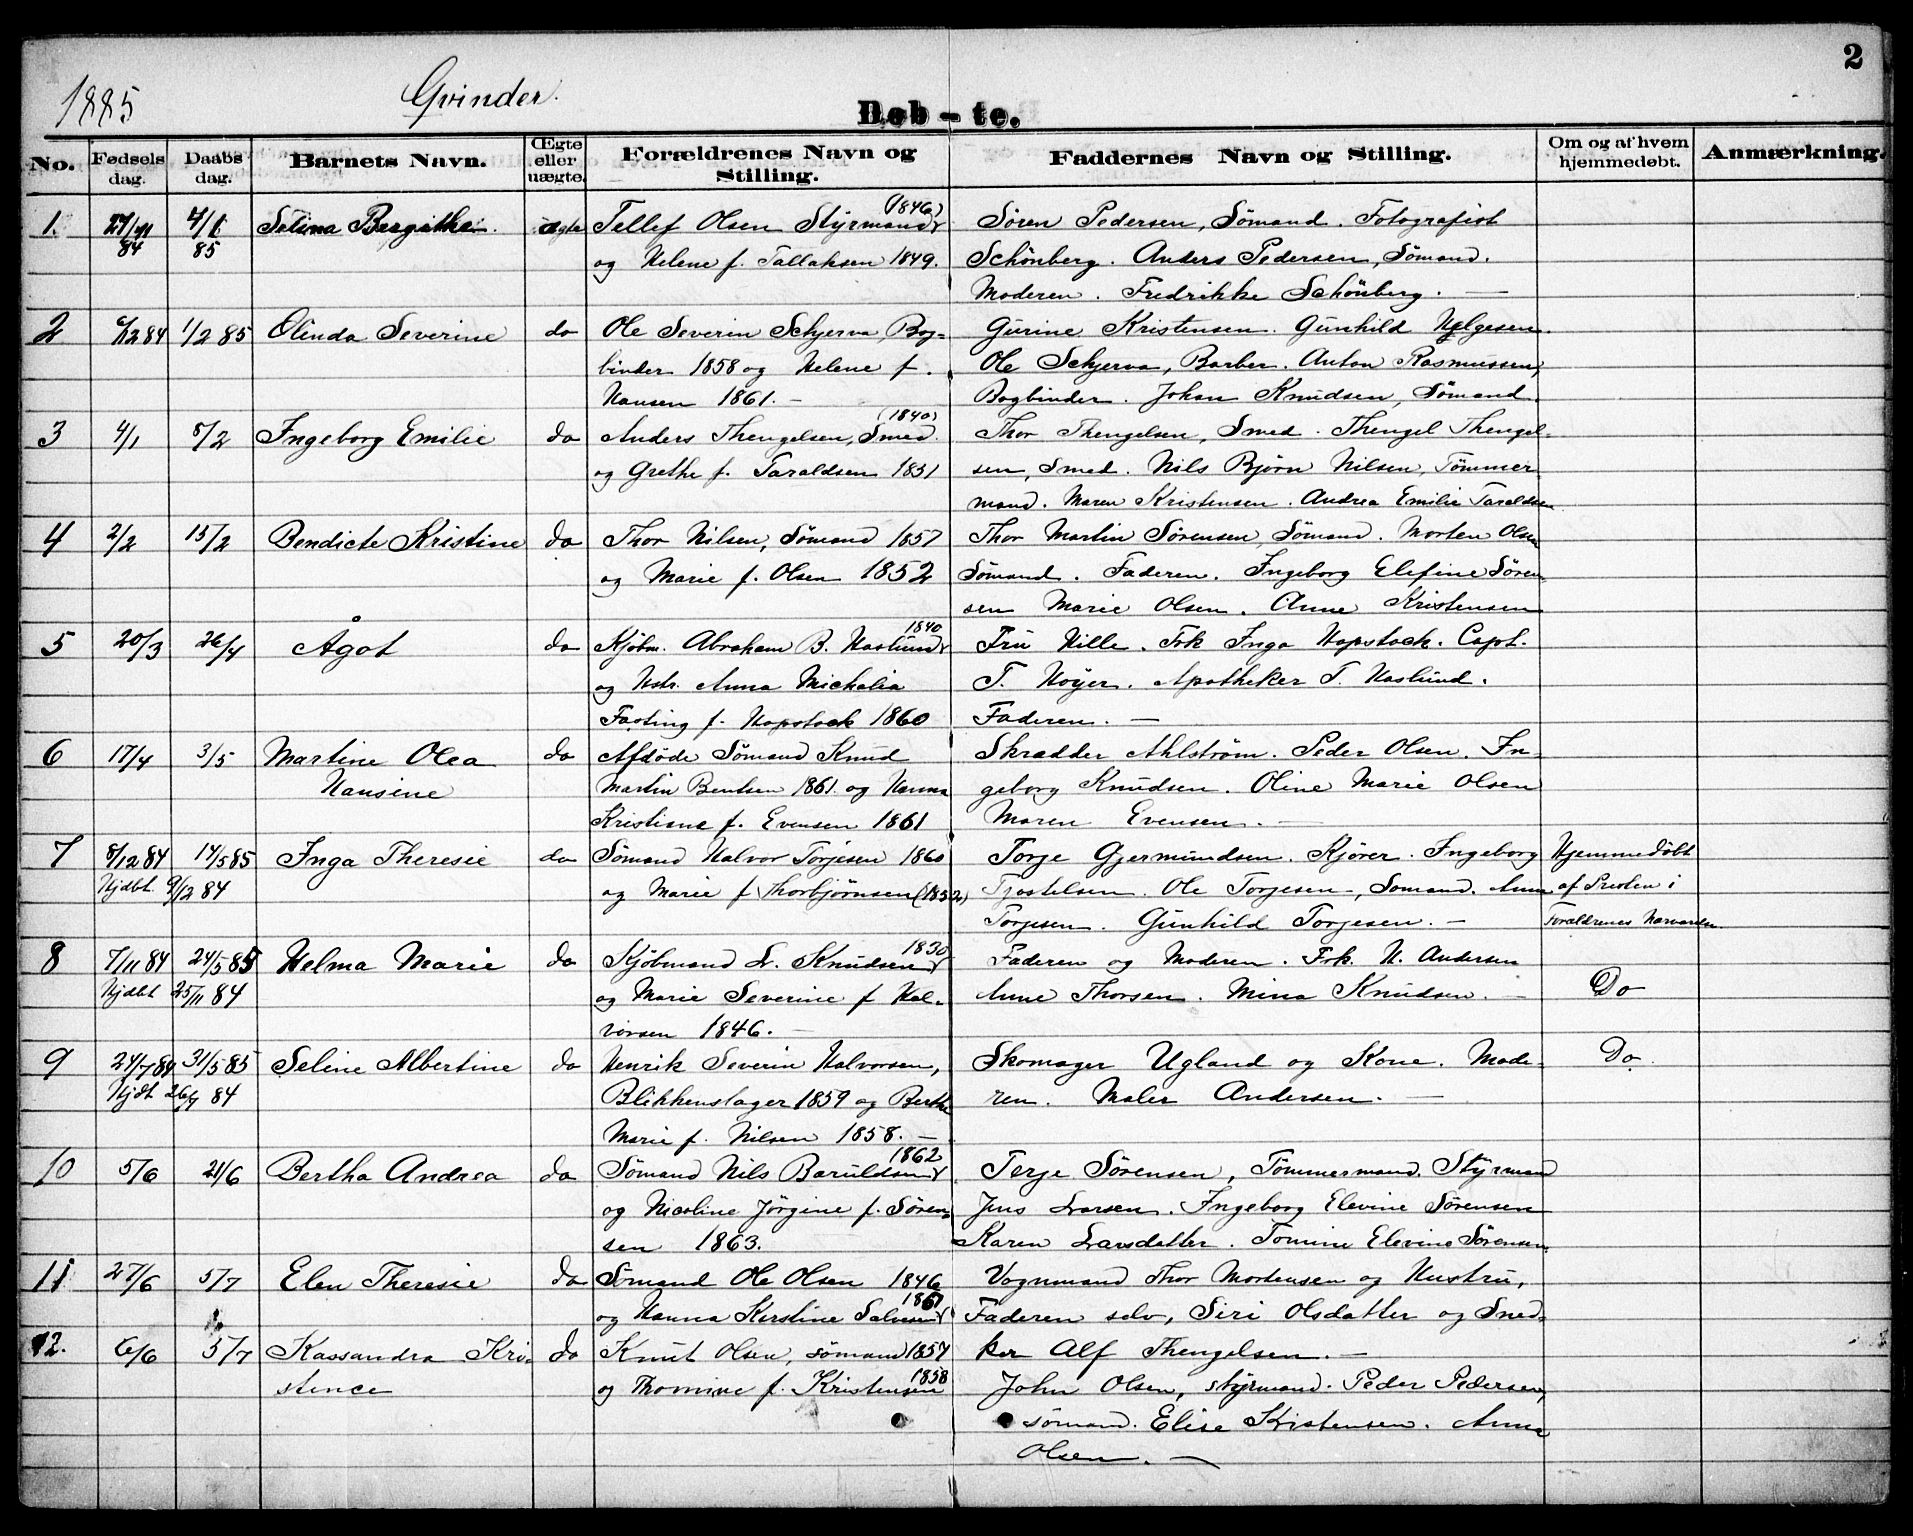 2
1885 Qvinder.
Døb - te.
No. Fødsels dag. Daabs dag. Barnets Navn. Ægte eller uægte. Forældrenes Navn og Stilling. Faddernes Navn og Stilling. Om og af hvem hjemmedøbt. Anmærkning.
1 27/11 84 4/1 85 Selina Bergithe. ægte Tellef Olsen Styrmand (1846) Søren Pedersen, Sømand. Fotografist
og Helene f. Tallaksen 1849. Schönberg. Anders Pedersen, Sømand.
Moderen. Fredrikke Schönberg. —
2 6/12 84 1/2 85 Olinda Severine do Ole Severin Schjerva, Bog- Gurine Kristensen. Gunhild Helgesen.
binder 1858 og Helene f. Ole Schjerva, Barber. Anton Rasmussen,
Hansen 1861. — Bogbinder. Johan Knudsen, Sømand.
3 4/1 8/2 Ingeborg Emilie do Anders Thengelsen, Smed. (1840) Thor Thengelsen, Smed. Thengel Thengel-
og Grethe f. Taraldsen 1851 sen, Smed. Nils Bjørn Nilsen, Tømmer
mand. Maren Kristensen. Andrea Emilie Taraldsen
4 2/2 15/2 Bendicte Kristine do Thor Nilsen, Sømand 1857 Thor Martin Sørensen, Sømand. Morten Olsen
og Marie f. Olsen 1852 Sømand. Faderen. Ingeborg Elefine Søren-
sen Marie Olsen. Anne Kristensen
5 20/3 26/4 Ågot do Kjøbm. Abraham B. Haslund 1840 Fru Hille. Frk Inga Hopstock. Capt.
og Hstr. Anna Michalia T. Høyer. Apotheker T. Haslund.
Fasting f. Hopstock 1860 Faderen. —
6 17/4 3/5 Martine Olea do Afdøde Sømand Knud Skrædder Ahlstrøm. Peder Olsen. In-
Hansine Martin Bentsen 1861 og Hanna geborg Knudsen. Oline Marie Olsen
Kristiane f. Evensen 1861 Maren Evensen. —
7 8/12 84 17/5 85 Inga Theresie do Sømand Halvor Torjesen 1860 Torje Gjermundsen. Kjører. Ingeborg Hjemmedøbt
Hjdbt 9/12 84 og Marie f Thorbjørnsen (1852) Tjostelsen. Ole Torjesen, Sømand. Anne af Presten i
Torjesen. Gunhild Torjesen. — Forældrenes Nærværelse.
8 7/11 84 24/5 85 Helma Marie do Kjøbmand L. Knudsen 1830 Faderen og Moderen. Frk. H. Andersen
Hjdbt 25/11 84 og Marie Severine f Hal- Anne Thorsen. Mina Knudsen. — Do
vorsen 1846. —
9 24/7 84 31/5 85 Seline Albertine do Henrik Severin Halvorsen, Skomager Ugland og Kone. Mode- Do.
Hjdt 26/7 84 Blikkenslager 1859 og Berthe ren. Maler Andersen. —
Marie f. Nilsen 1858. —
10 5/6 21/6 Bertha Andrea do Sømand Nils Baruldsen 1862 Terje Sørensen, Tømmermand. Styrmand
og Nicoline Jørgine f. Søren- Jens Larsen. Ingeborg Elevine Sørensen
sen 1863. Karen Larsdatter. Tomine Elevine Sørensen
11 27/6 5/7 Elen Theresie do Sømand Ole Olsen 1846 Vognmand Thor Mortensen og Hustru,
og Hanna Kerstine Salvesen 1867 Faderen selv, Siri Olsdatter og Sned-
12. 6/6 5/7 Kassandra Kri- do Knut Olsen, sømand 1857 ker Alf Thengelsen. —
stence og Thomine f. Kristensen 1858 John Olsen, styrmand. Peder Pedersen,
sømand. Elise Kristensen. Anna
Olsen. —